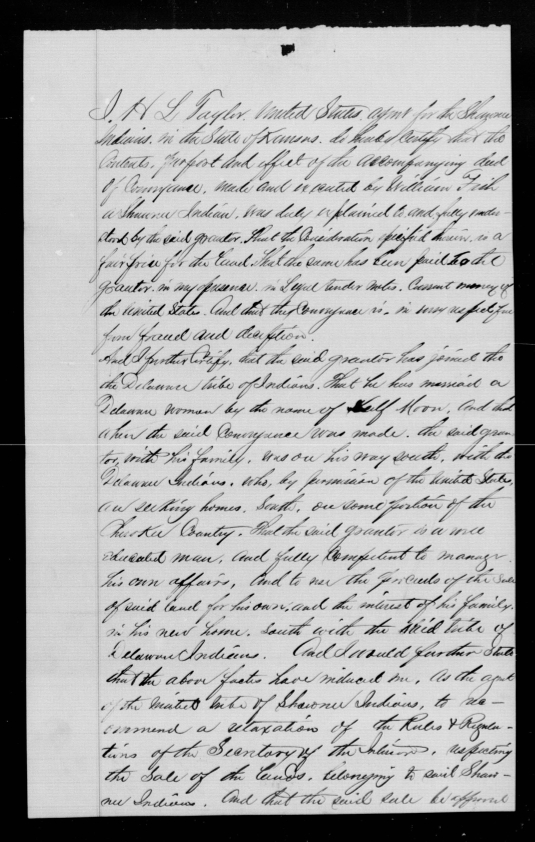 I, H L Taylor, United States agent for the Shawnee
Indians. in the State of Kansas. do hereby Certify that the
Contents. purport and effect of the accompanying deed
Of Conveyance, made and executed by William Fish
a Shawnee Indian, was duly explained to and fully under-
stood by the said grantor. That the Consideration specified therein, is a
fair price for the Land. That the same has been paid to the
grantor. in my presence. in Legal tender notes. Current money of
the United States. And that this Conveyance is, in every respect free
from fraud and deception.
And I further Certify, that the said grantor has joined the
the Delaware tribe of Indians. That he has married a
Delaware woman by the name of Half Moon. And that
when the said Conveyance was made. the said gran-
tor, with his family. was on his way south. with the
Delaware Indians. who, by permission of the United States,
are seeking homes. South. on some portion of the
Cherokee Country. That the said grantor is a well
educated man. and fully Competent to manage
his own affairs, and to use the proceeds of the Sale
of said land for his own, and the interest of his family.
in his new home. South with the said tribe of
Delaware Indians. And I would further State
that the above facts have induced me, As the agent
of the United tribe of Shawnee Indians, to re-
commend a relaxation of the Rules & Regula-
tions of the Secretary of the Interior. respecting
the Sale of the Lands. belonging to said Shaw-
nee Indians. And that the said sale be approved